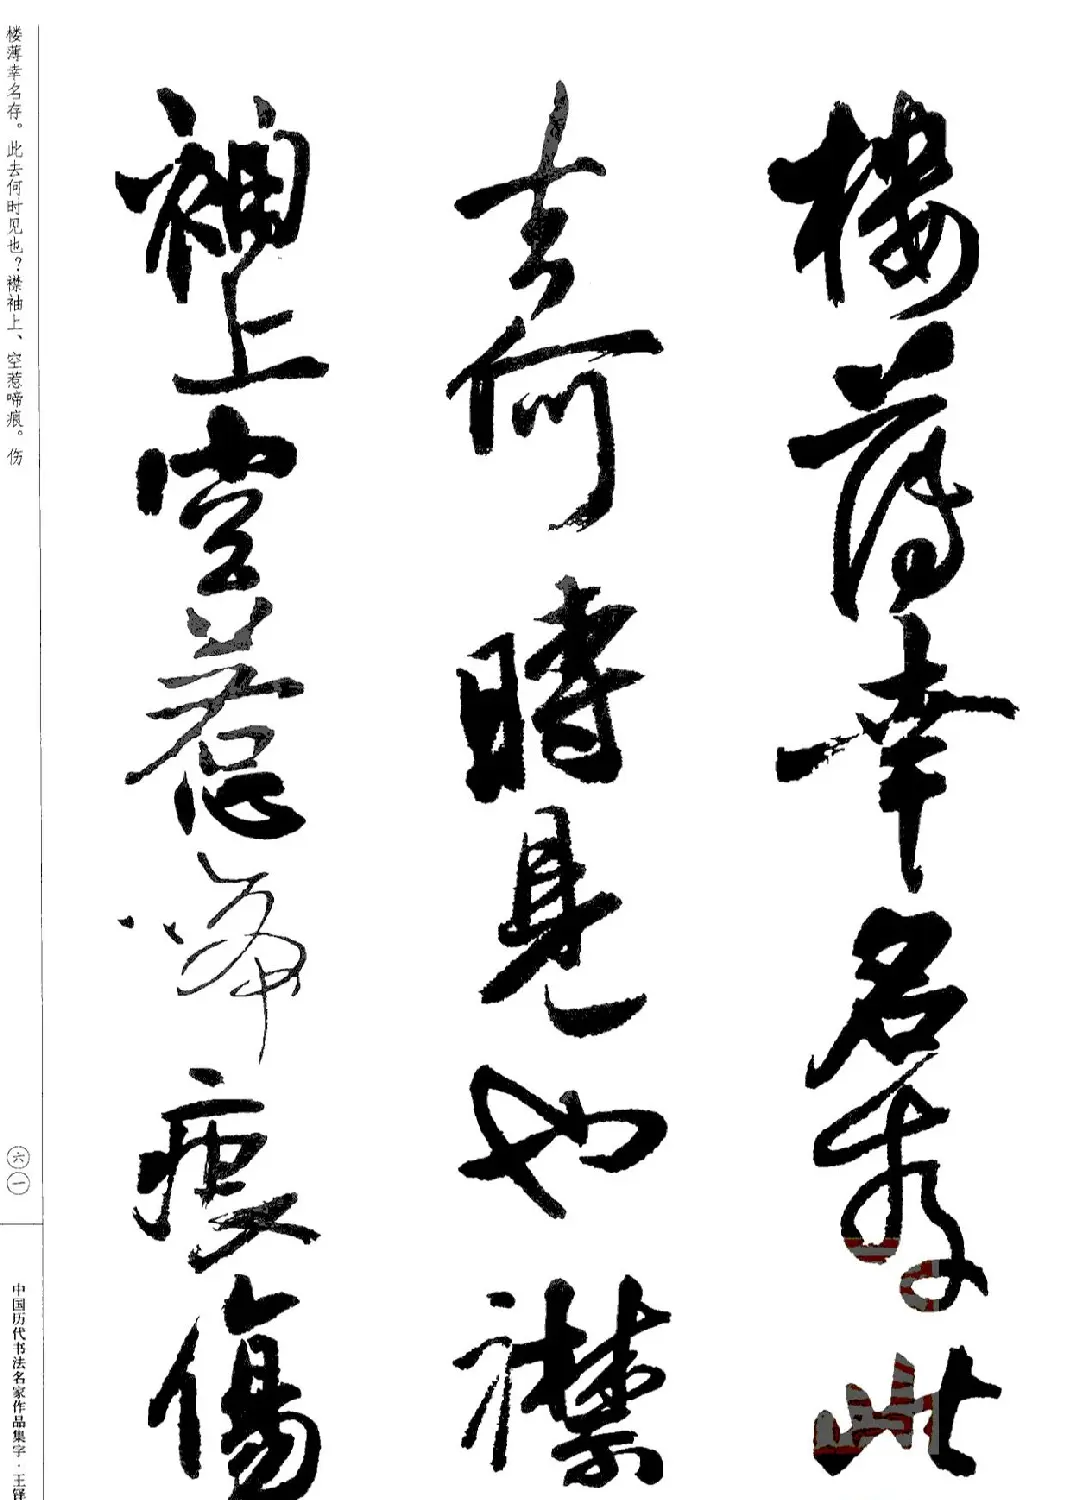 樓薄幸名存此
去何時見也襟
袖上空惹啼痕傷
楼薄幸名存。此去何时见也？襟袖上、空惹啼痕。伤
六一
中国历代书法名家作品集字·王铎